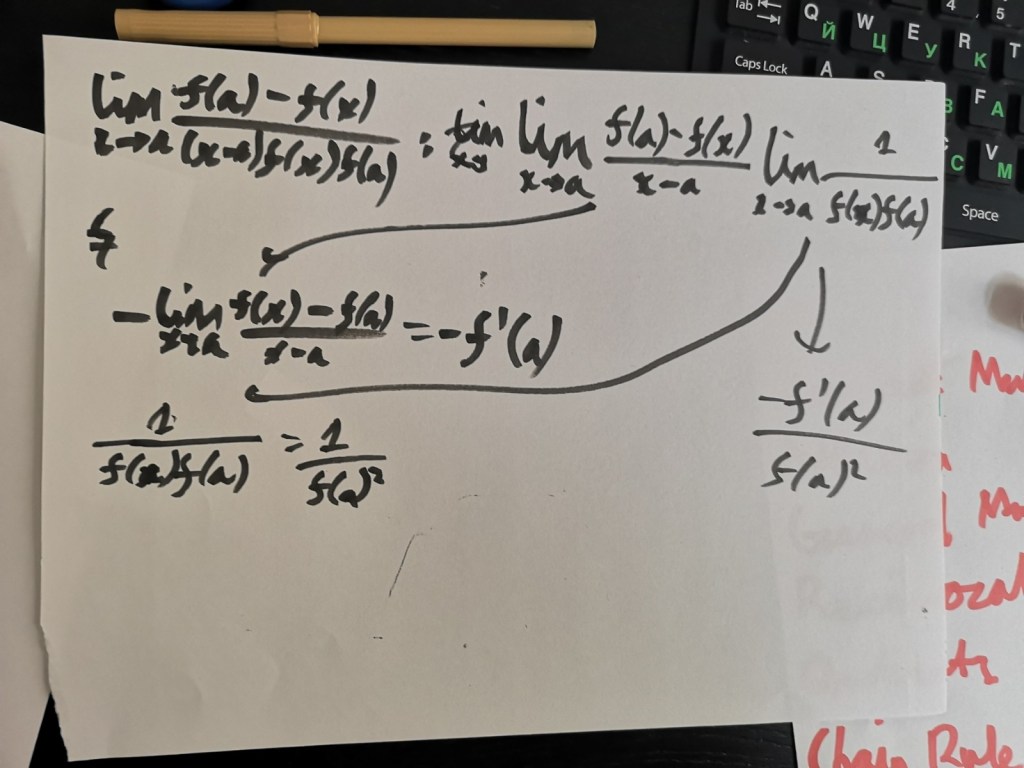 lim x→a f(a) - f(x) / (x-a)f(x)f(a) = lim x→a f(a)-f(x) / x-a lim x→a 1 / f(x)f(a)
- lim x→a f(x) - f(a) / x-a = -f'(a)
1 / f(x)f(a) = 1 / f(a)²
-f'(a) / f(a)²
Tab
Q Й W Ц E У R К T
4 5
Caps Lock A S F А
C С V М
Space
Chain Rule